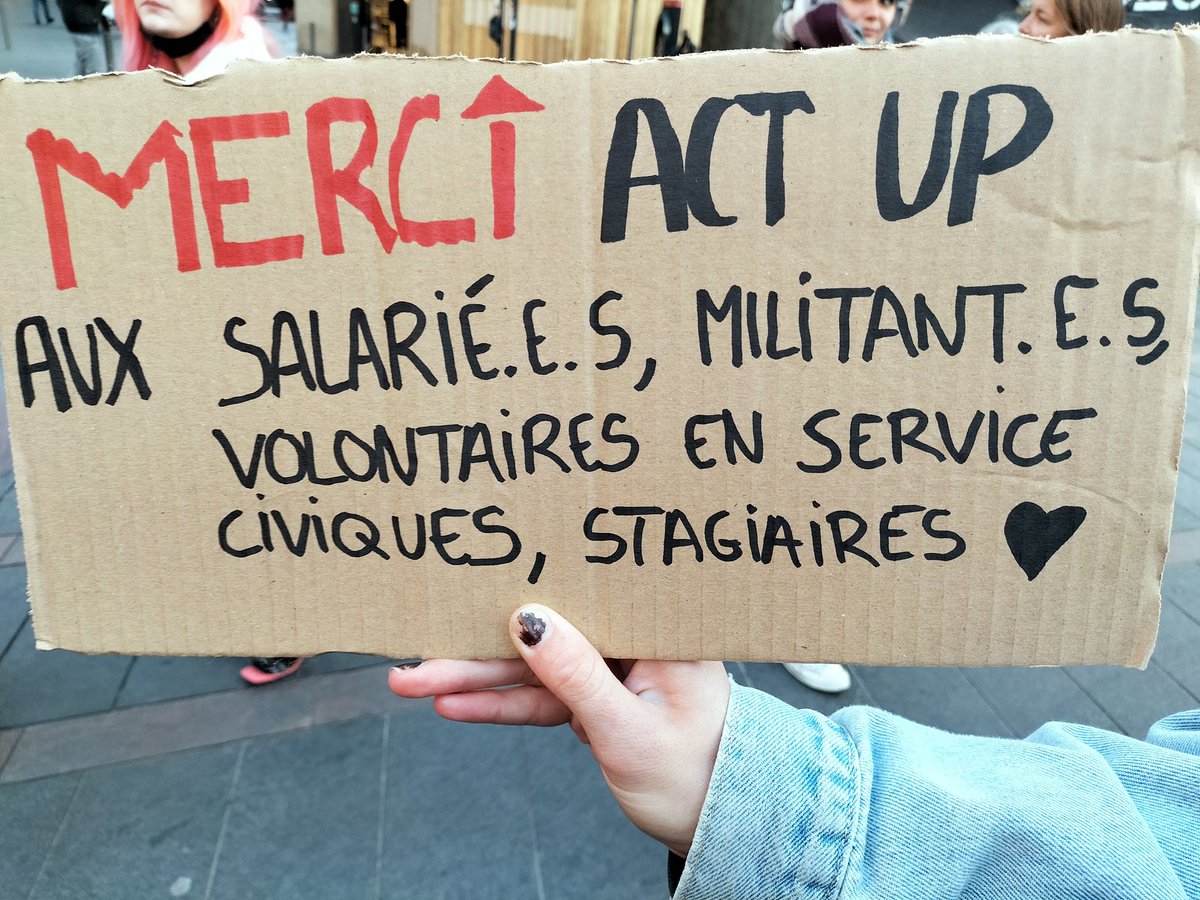 MERCI ACT UP
AUX SALARIÉ.E.S, MILITANT.E.S,
VOLONTAIRES EN SERVICE
CIVIQUES, STAGIAIRES ♥